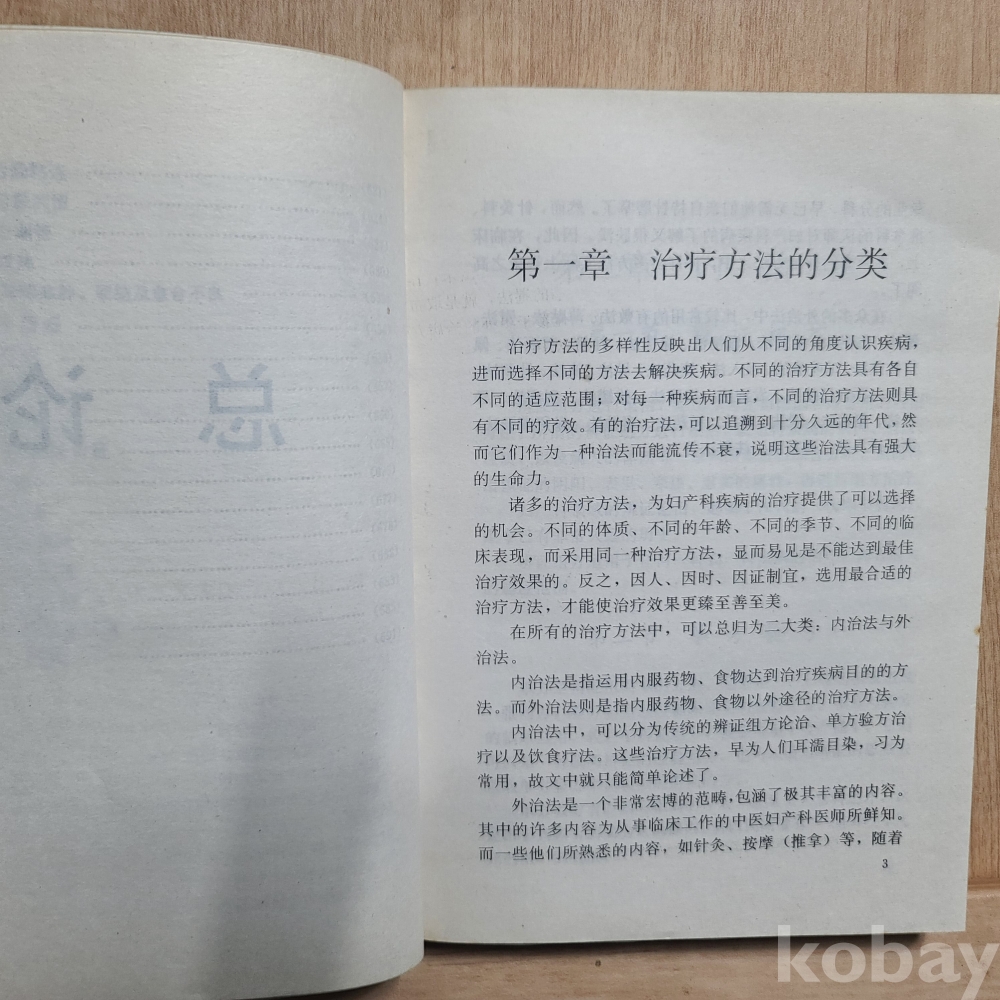 第一章 治疗方法的分类
治疗方法的多样性反映出人们从不同的角度认识疾病，
进而选择不同的方法去解决疾病。不同的治疗方法具有各自
不同的适应范围；对每一种疾病而言，不同的治疗方法则具
有不同的疗效。有的治疗法，可以追溯到十分久远的年代，然
而它们作为一种治法而能流传不衰，说明这些治法具有强大
的生命力。
诸多的治疗方法，为妇产科疾病的治疗提供了可以选择
的机会。不同的体质、不同的年龄、不同的季节、不同的临
床表现，而采用同一种治疗方法，显而易见是不能达到最佳
治疗效果的。反之，因人、因时、因证制宜，选用最合适的
治疗方法，才能使治疗效果更臻至善至美。
在所有的治疗方法中，可以总归为二大类：内治法与外
治法。
内治法是指运用内服药物、食物达到治疗疾病目的的方
法。而外治法则是指内服药物、食物以外途径的治疗方法。
内治法中，可以分为传统的辨证组方论治、单方验方治
疗以及饮食疗法。这些治疗方法，早为人们耳濡目染，习为
常用，故文中就只能简单论述了。
外治法是一个非常宏博的范畴，包涵了极其丰富的内容。
其中的许多内容为从事临床工作的中医妇产科医师所鲜知。
而一些他们所熟悉的内容，如针灸、按摩（推拿）等，随着
3
总论
kobay